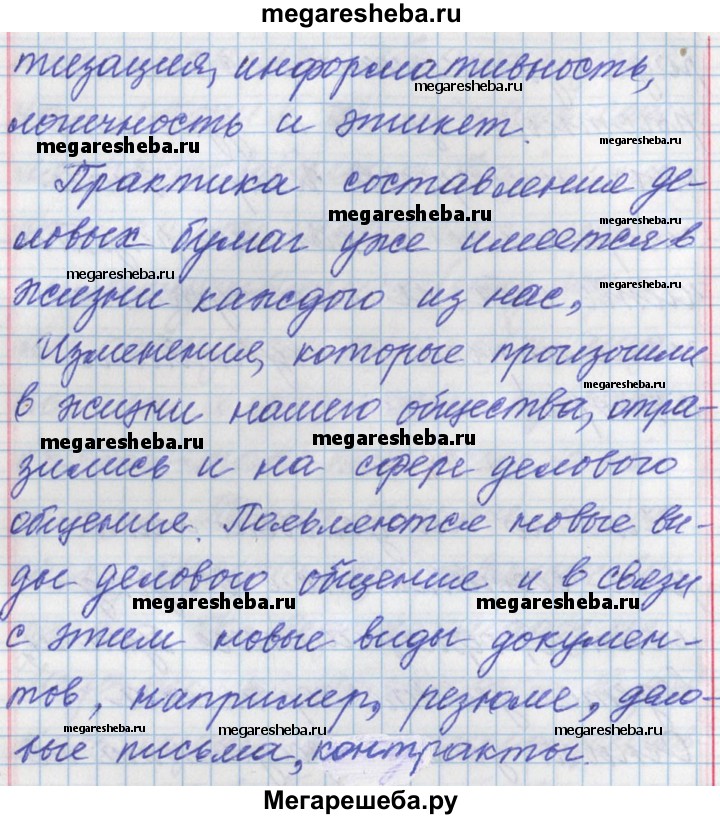 megaresheba.ru
тизация, информативность,
megaresheba.ru
логичность и этикет.
megaresheba.ru
megaresheba.ru
Практика составления де-
megaresheba.ru
megaresheba.ru
ловых бумаг уже имеется в
megaresheba.ru
megaresheba.ru
жизни каждого из нас,
Изменения, которые произошли
megaresheba.ru
в жизни нашего общества, отра-
megaresheba.ru
megaresheba.ru
зились и на сфере делового
megaresheba.ru
общения. Появляются новые ви-
ды делового общения и в связи
megaresheba.ru
megaresheba.ru
с этим новые виды докумен-
тов, например, резюме, дело-
megaresheba.ru
megaresheba.ru
вые письма, контракты.
Мегарешеба.ру